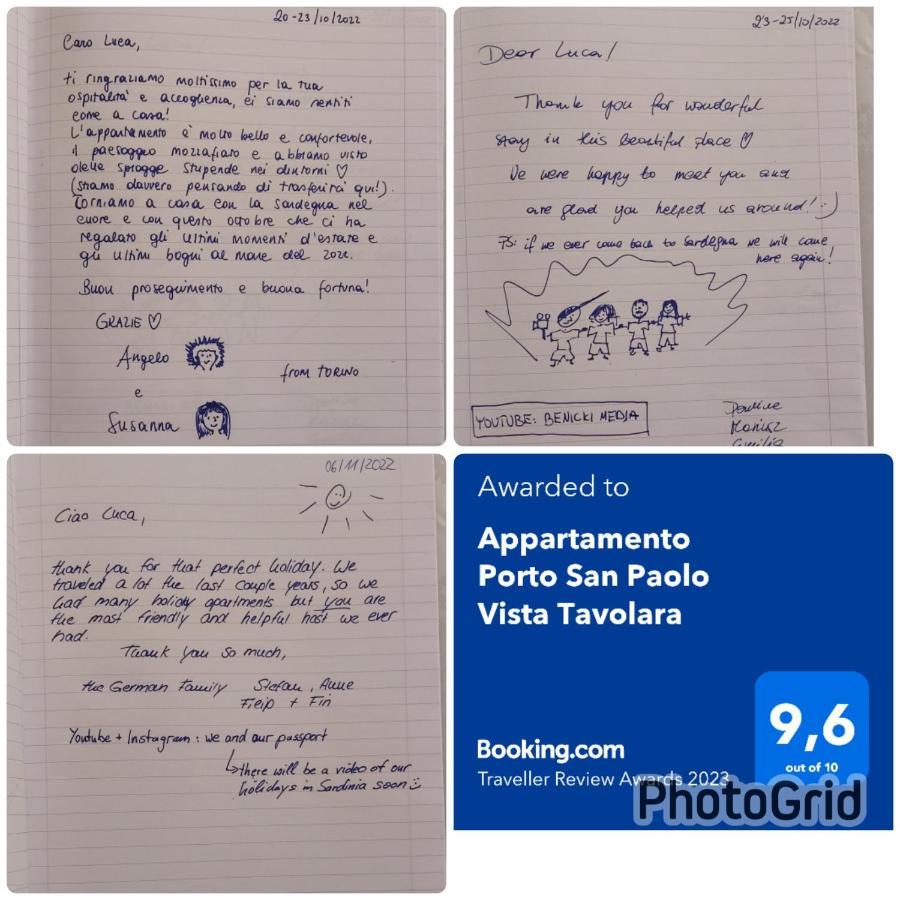 20-23/10/2022
Caro Luca,
ti ringraziamo moltissimo per la tua
ospitalità e accoglienza, ci siamo sentiti
come a casa!
L'appartamento è molto bello e confortevole,
il paesaggio mozzafiato e abbiamo visto
delle spiagge stupende nei dintorni ♡
(stiamo davvero pensando di trasferirci qui!).
Torniamo a casa con la Sardegna nel
cuore e con questo ottobre che ci ha
regalato gli ultimi momenti d'estate e
gli ultimi bagni al mare del 2022.
Buon proseguimento e buona fortuna!
GRAZIE ♡
Angelo
e
Susanna
from TORINO
23-25/10/2022
Dear Luca!
Thank you for wonderful
stay in this beautiful place ♡
We were happy to meet you and
are glad you helped us around! :)
PS: if we ever come back to Sardegna we will come
here again!
YOUTUBE: BENICKI MEDIA
06/11/2022
Ciao Luca,
thank you for that perfect holiday. We
traveled a lot the last couple years, so we
had many holiday apartments but you are
the most friendly and helpful host we ever
had.
Thank you so much,
the German Family Stefan, Anne
+ Fin
Youtube + Instagram: we and our passport
↳ there will be a video of our
holidays in Sardinia soon :)
Awarded to
Appartamento
Porto San Paolo
Vista Tavolara
9,6
out of 10
Booking.com
Traveller Review Awards 2023
PhotoGrid